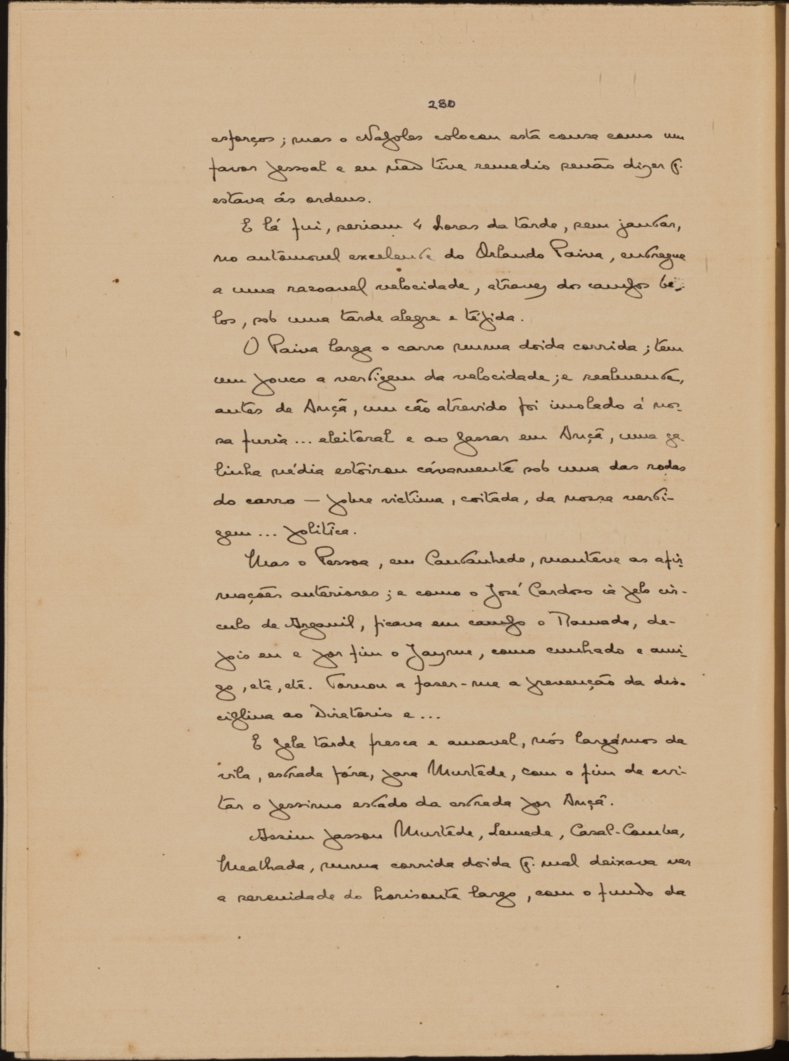 280
esforços; mas o Napoles colocou esta cousa como um
favor pessoal e eu não tive remedio senão dizer q.
estava ás ordens.
E lá fui, seriam 4 horas da tarde, sem jantar,
no automovel excelente do Orlando Paiva, entregue
a uma razoavel velocidade, atravez dos campos be-
los, sob uma tarde alegre e tépida.
O Paiva larga o carro numa doida corrida; tem
um pouco a vertigem da velocidade; e realmente,
antes de Ançã, um cão atrevido foi imolado á nos-
sa furia... eleitoral e ao passar em Ançã, uma ga-
linha nédia estoirou cávamente sob uma das rodas
do carro — pobre victima, coitada, da nossa verti-
gem... politica.
Mas o Pessoa, em Cantanhede, manteve as afir-
mações anteriores; e como o José Cardoso ia pelo cir-
culo de Arganil, ficava em campo o Ramada, de-
pois eu e por fim o Jayme, como cunhado e ami-
go, etc, etc. Tornou a fazer-me a prevenção da dis-
ciplina ao Diretorio e...
E pela tarde fresca e amavel, nós largámos da
vila, estrada fóra, para Murtede, com o fim de evi-
tar o pessimo estado da estrada por Ançã.
Assim passou Murtede, Lemede, Casal-Comba,
Mealhada, numa corrida doida q. mal deixava ver
a serenidade do horisonte largo, com o fundo da